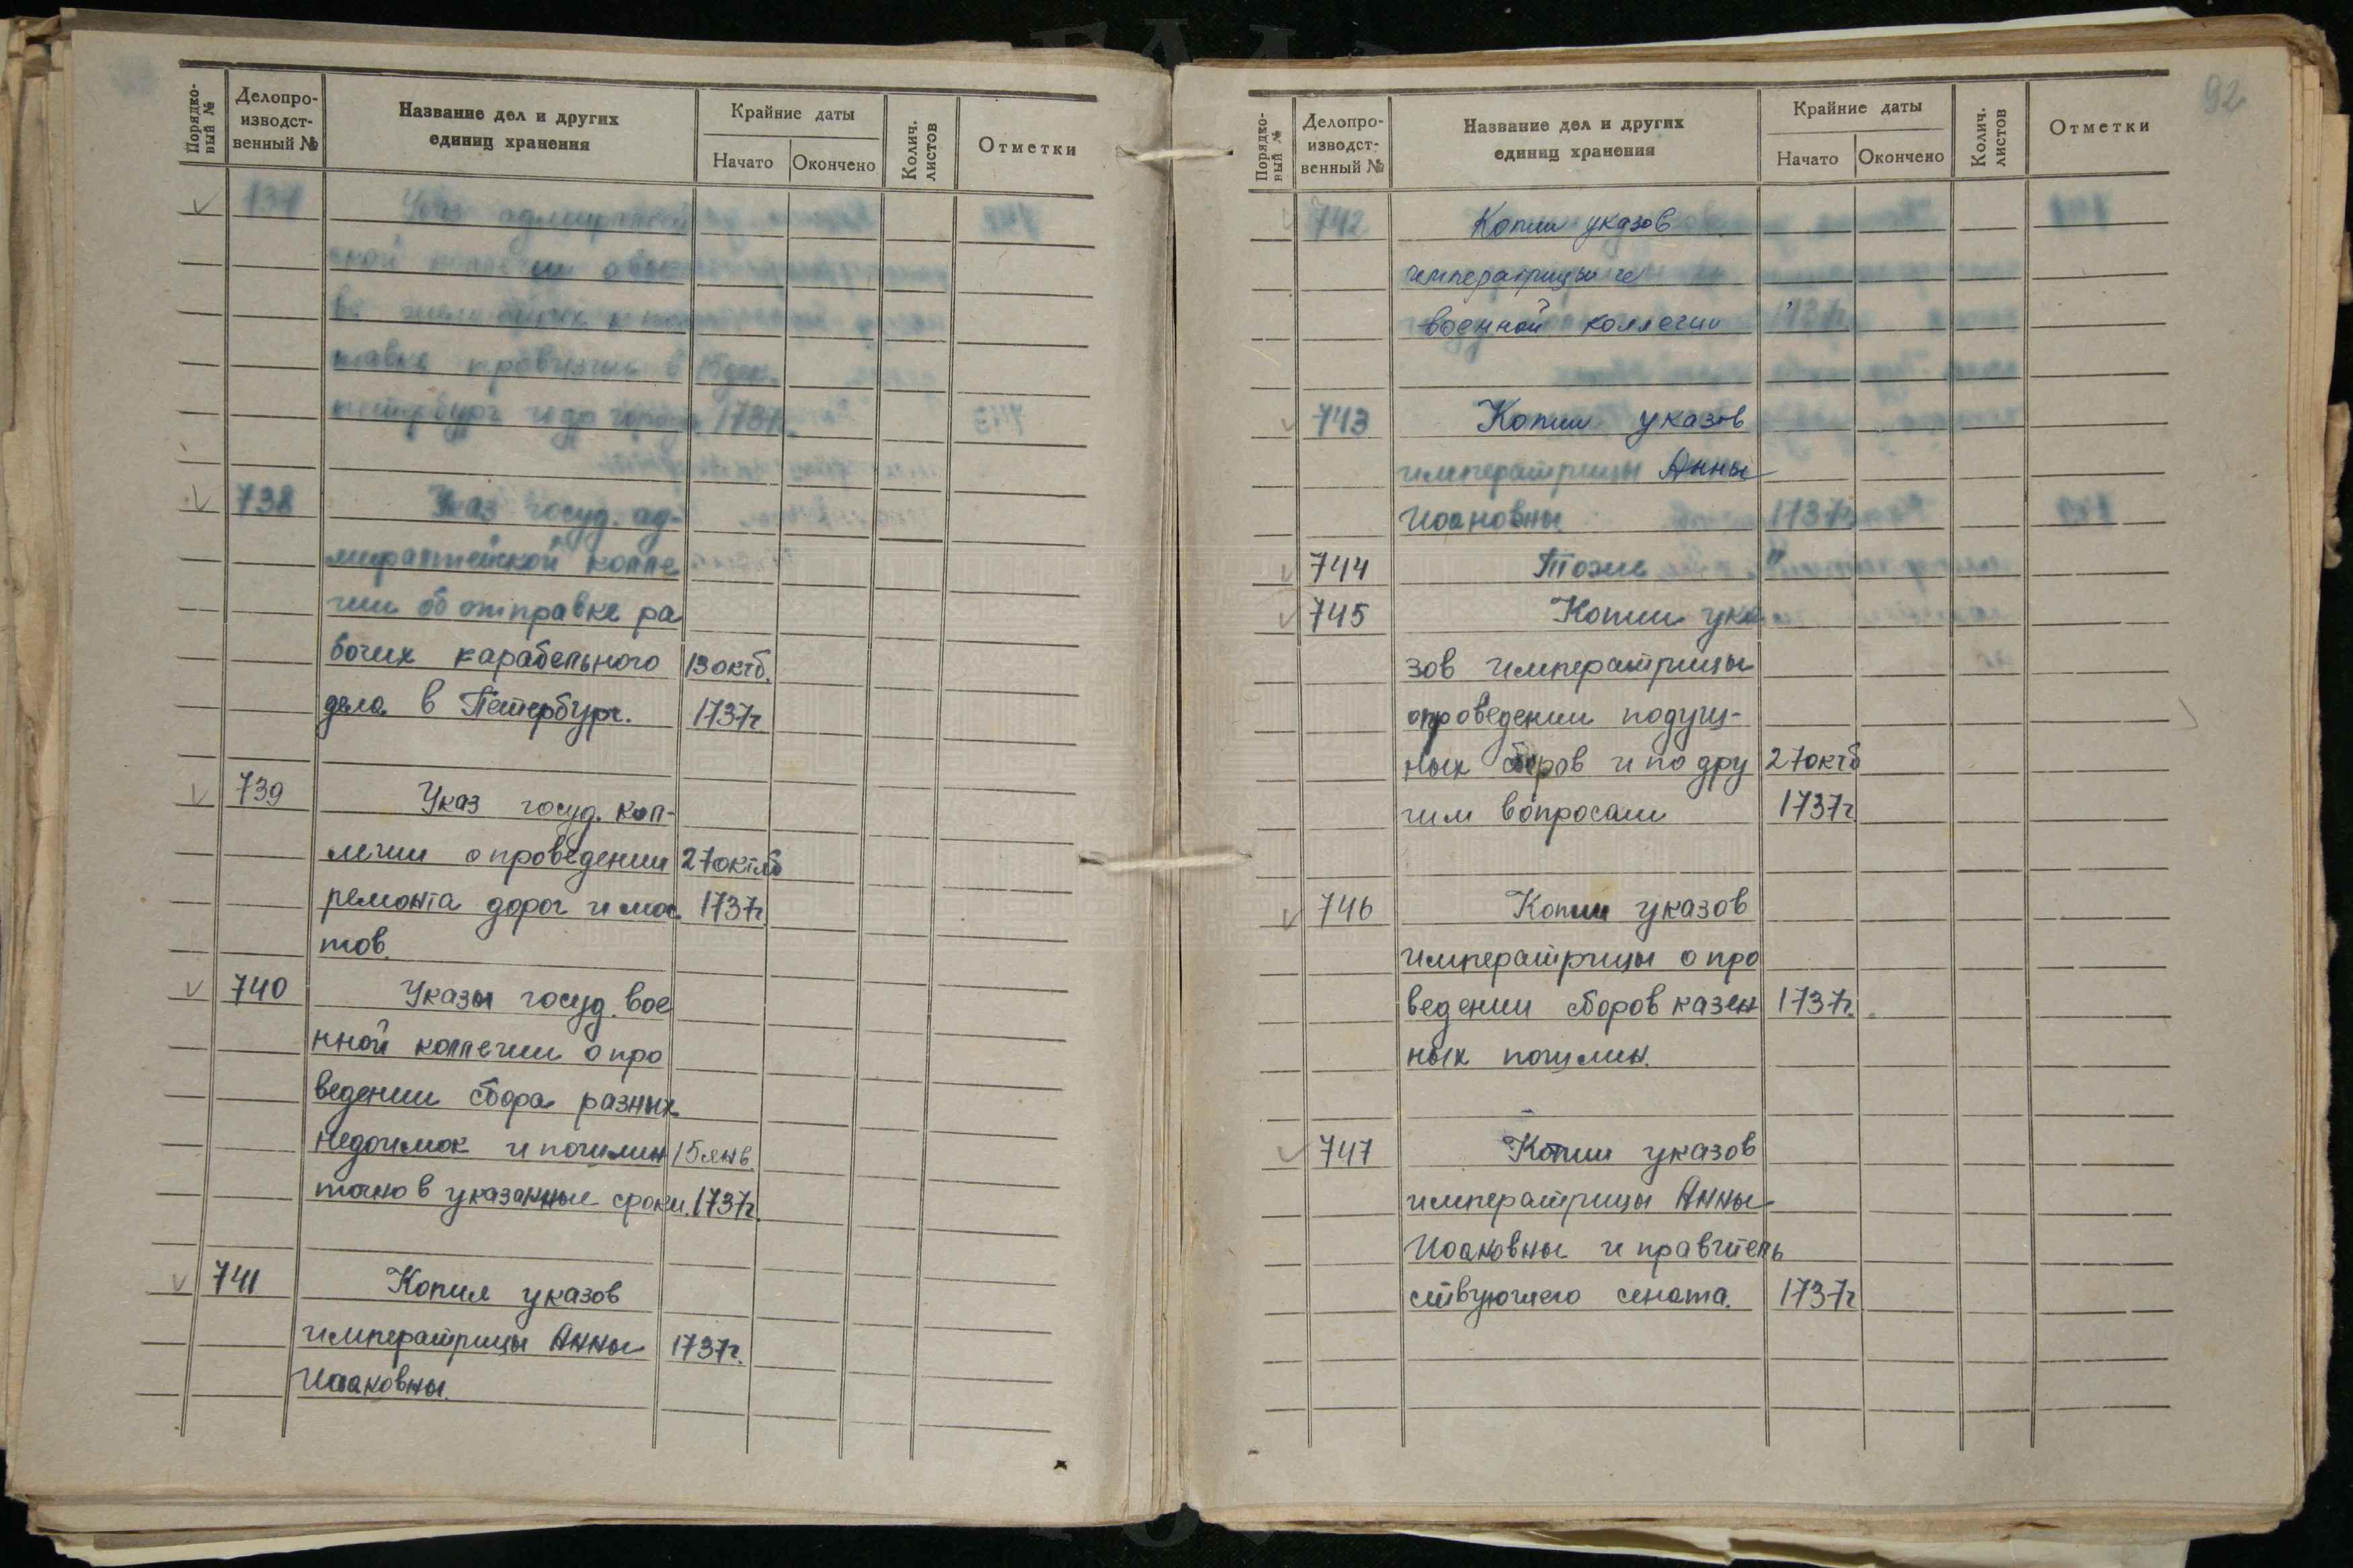 Порядко-
вый №
Делопро-
изводст-
венный №
Название дел и других
единиц хранения
Крайние даты
Начато
Окончено
Колич.
листов
Отметки
Указ
ской коллегии
ставке провизии в 15 дек.
1737г.
738 Указ госуд. ад-
миралтейской колле
гии об отправке ра
бочих карабельного 13 октб.
дела в Петербург. 1737г
739 Указ госуд. кол-
легии о проведении 27 октяб
ремонта дорог и мос 1737г.
тов.
740 Указы госуд. вое
нной коллегии о про
ведении сбора разных
недоимок и пошлин 15 янв.
точно в указанные сроки. 1737г.
741 Копия указов
императрицы Анны 1737г.
Иоановны.
92
Порядко-
вый №
Делопро-
изводст-
венный №
Название дел и других
единиц хранения
Крайние даты
Начато
Окончено
Колич.
листов
Отметки
742 Копии указов
императрицы и
военной коллегии 1737г.
743 Копии указов
императрицы Анны
Иоановны. 1737г
744 Тоже "
745 Копии ука
зов императрицы
о проведении подуш-
ных сборов и по дру 27 октб
гим вопросам 1737г
746 Копии указов
императрицы о про
ведении сборов казен 1737г.
ных пошлин.
747 Копии указов
императрицы Анны
Иоановны и правитель
ствующего сената. 1737г